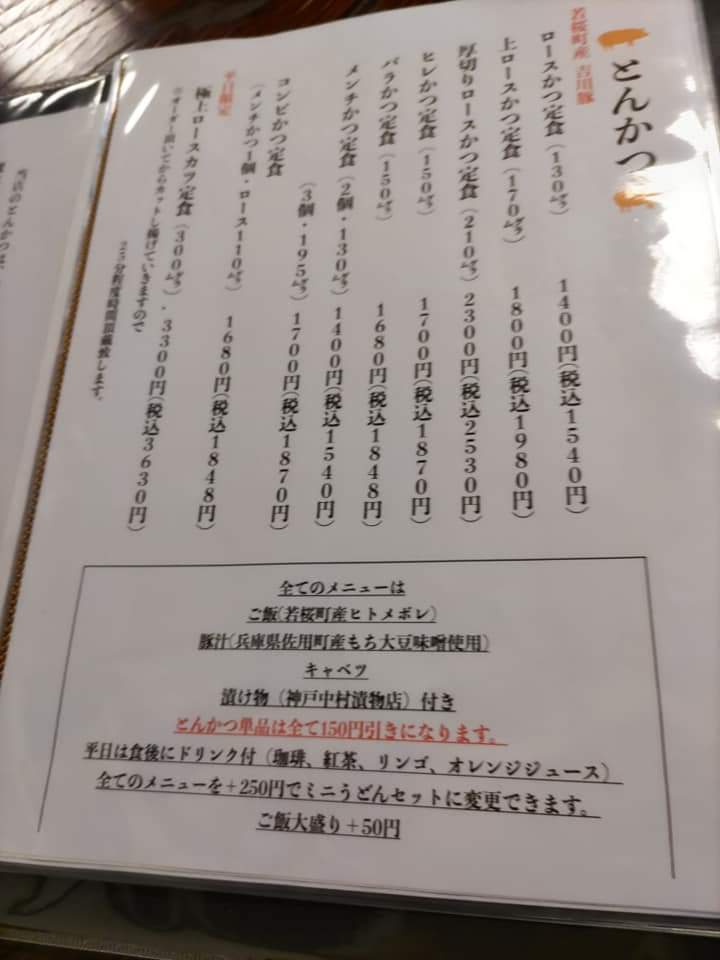 とんかつ
若桜町産 吉川豚
ロースかつ定食(130㌘) 1400円(税込1540円)
上ロースかつ定食(170㌘) 1800円(税込1980円)
厚切りロースかつ定食(210㌘)2300円(税込2530円)
ヒレかつ定食(150㌘) 1700円(税込1870円)
バラかつ定食(150㌘) 1680円(税込1848円)
メンチかつ定食(2個・130㌘)1400円(税込1540円)
(3個・195㌘)1700円(税込1870円)
コンビかつ定食
(メンチかつ1個・ロース110㌘) 1680円(税込1848円)
平日限定
極上ロースカツ定食(300㌘)・3300円(税込3630円)
※オーダー頂いてからカットし揚げていきますので
25分程度時間頂戴致します。
全てのメニューは
ご飯(若桜町産ヒトメボレ)
豚汁(兵庫県佐用町産もち大豆味噌使用)
キャベツ
漬け物(神戸中村漬物店)付き
とんかつ単品は全て150円引きになります。
平日は食後にドリンク付(珈琲、紅茶、リンゴ、オレンジジュース)
全てのメニューを+250円でミニうどんセットに変更できます。
ご飯大盛り+50円
当店のとんかつは、